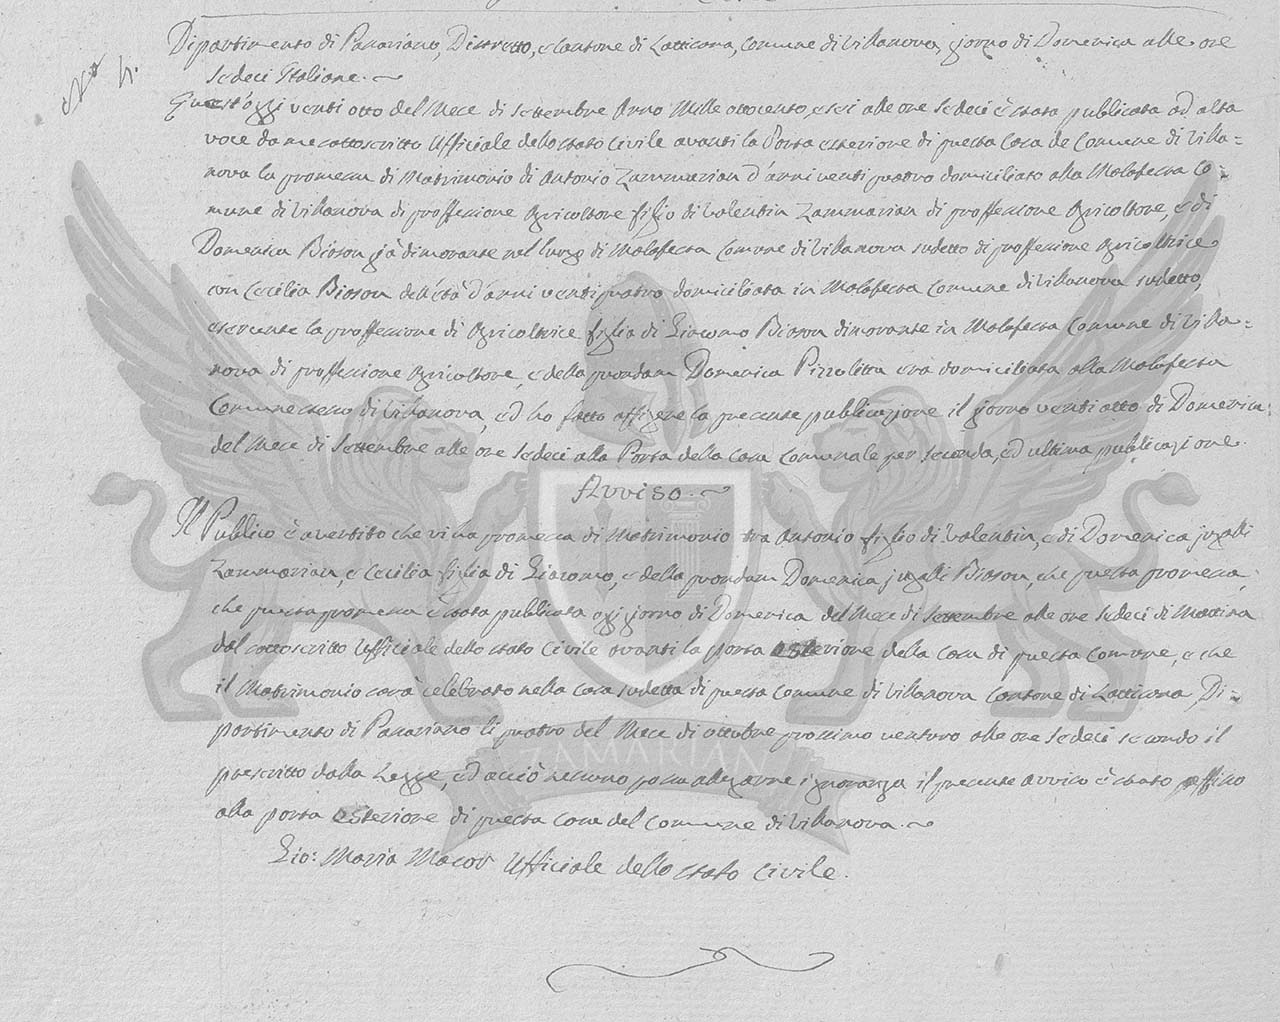 No 4.
Dipartimento di Passariano, Distretto, e Cantone di Latticana, Comune di Villanova, giorno di Domenica alle ore
sedeci Italiane.
Quest'oggi venti otto del Mese di Settembre Anno Mille ottocento, e sei alle ore sedeci è stata publicata ad alta
voce da me sottoscritto Ufficiale dello stato Civile avanti la Porta esteriore di questa Casa de Comune di Villa=
nova la promessa di Matrimonio di Antonio Zammarian d'anni venti quatro domiciliato alla Malafesta Co=
mune di Villanova di proffessione Agricoltore figlio di Valentin Zammarian di proffessione Agricoltore, e di
Domenica Bioson già dimorante nel luogo di Malafesta Comune di Villanova sudetto di proffessione Agricoltrice
con Cecilia Bioson dell'età d'anni venti quatro domiciliata in Malafesta Comune di Villanova sudetto,
esercente la proffessione di Agricoltrice figlia di Giacomo Bioson dimorante in Malafesta Comune di Villa=
nova di proffessione Agricoltore, e della quondam Domenica Pizzolitta era domiciliata alla Malafesta
Comune stesso di Villanova, ed ho fatto affigere la presente publicazione il giorno venti otto di Domenica
del Mese di Settembre alle ore sedeci alla Porta della Casa Comunale per seconda, ed ultima publicazione.
Avviso.
Il Publico è avertito che vi ha promessa di Matrimonio tra Antonio figlio di Valentin, e di Domenica jugalli
Zammarian, e Cecilia figlia di Giacomo, e della quondam Domenica jugalli Bioson, che questa promessa,
che questa promessa è stata publicata ogi giorno di Domenica del Mese di Settembre alle ore sedeci di Mattina
dal sottoscritto Ufficiale dello stato Civile avanti la porta esteriore della Casa di questa Comune, e che
il Matrimonio sarà celebrato nella Casa sudetta di questa Comune di Villanova Cantone di Latticana, Di=
partimento di Passariano li quatro del Mese di ottobre prossimo venturo alle ore sedeci secondo il
prescritto dalla Legge, ed acciò nessuno possa allegarne ignoranza il presente Avviso è stato affisso
alla porta esteriore di questa Casa del Comune di Villanova.
Gio: Maria Macor Ufficiale dello stato Civile.
ZAMARIAN